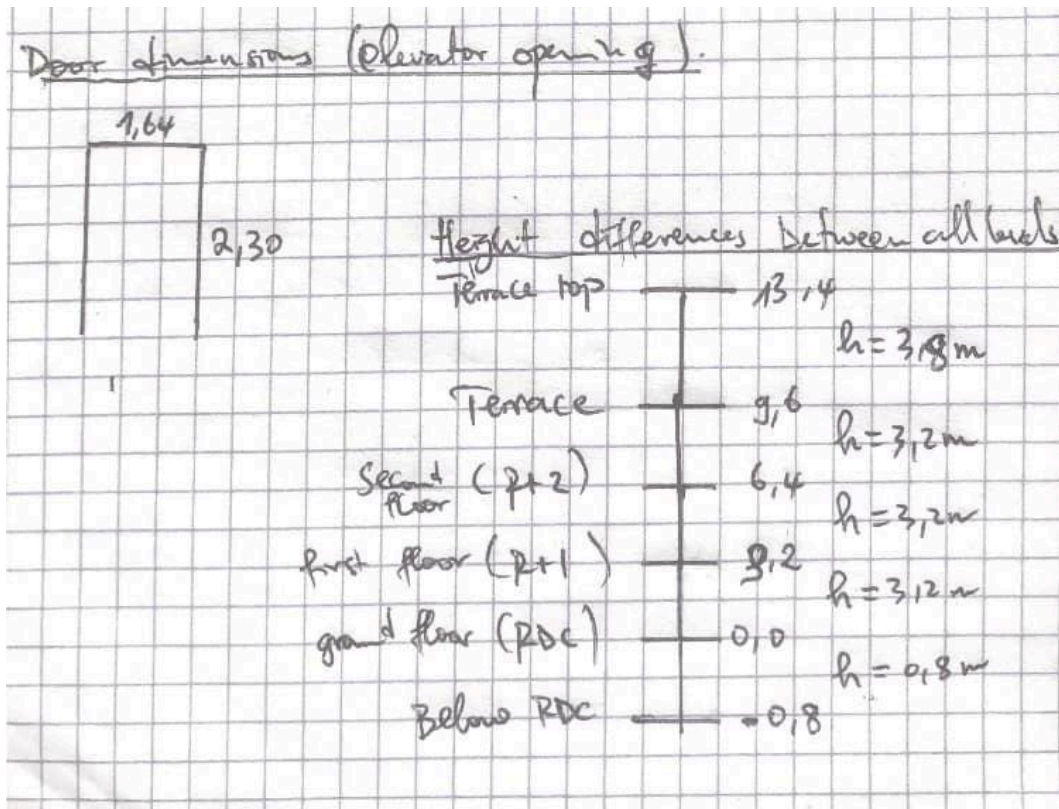 Door dimensions (elevator opening).
1,64
2,30
Height differences between all levels
Terrace top 13,4
h = 3,8 m
Terrace 9,6
h = 3,2 m
Second floor (R+2) 6,4
h = 3,2 m
first floor (R+1) 3,2
h = 3,2 m
ground floor (RDC) 0,0
h = 0,8 m
Below RDC -0,8